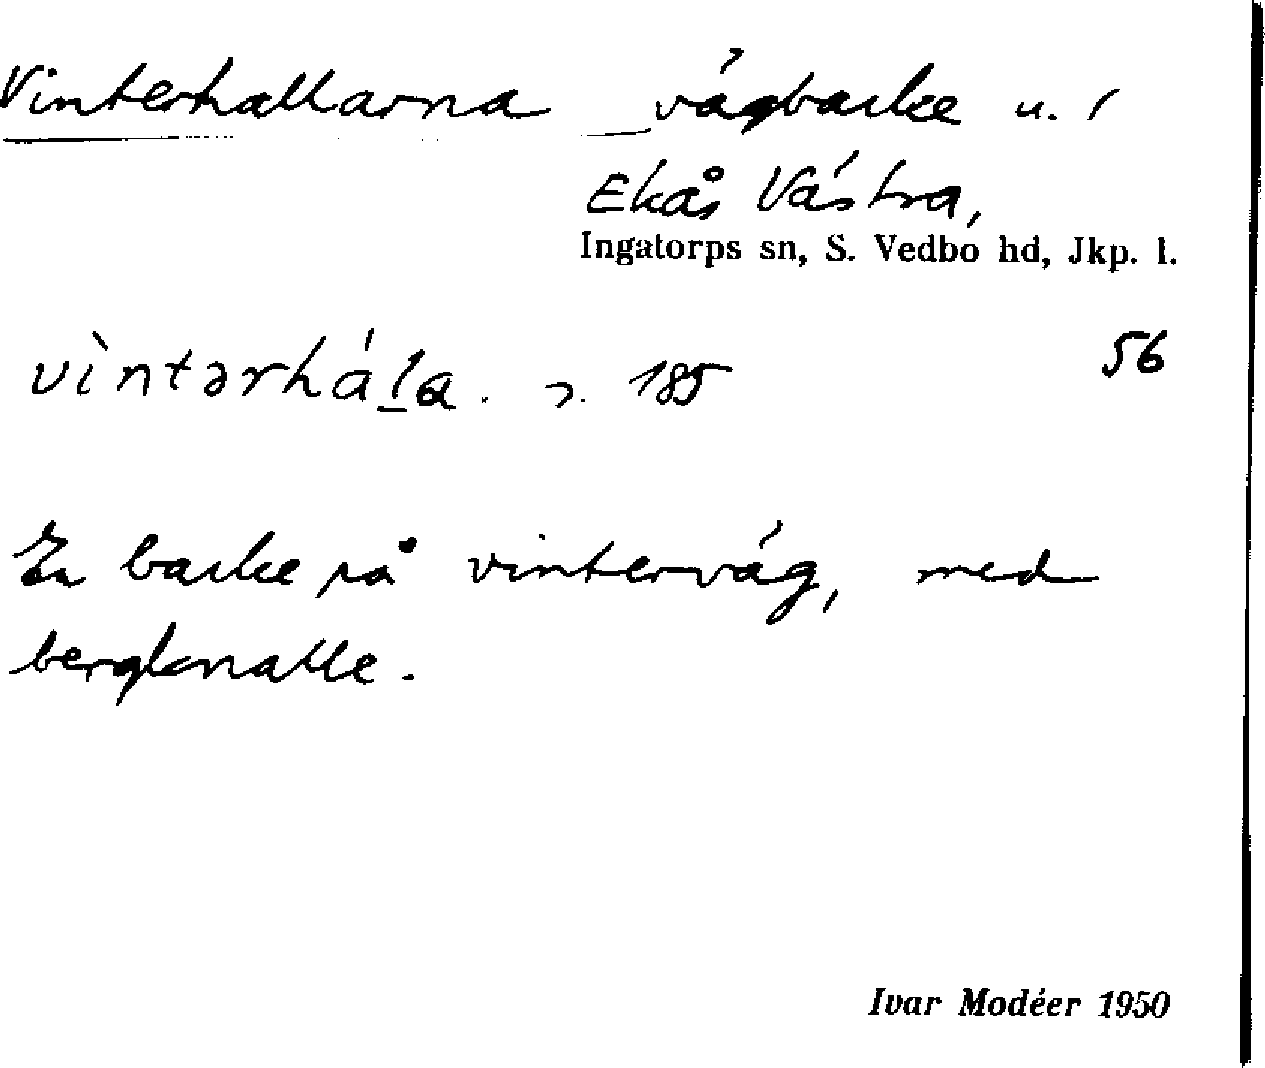 Vinterhallarna vägbacke u. /
Ekås Västra,
Ingatorps sn, S. Vedbo hd, Jkp. l.
vìntərháḻa. 185 56
En backe på vinterväg, med
bergknalle.
Ivar Modéer 1950